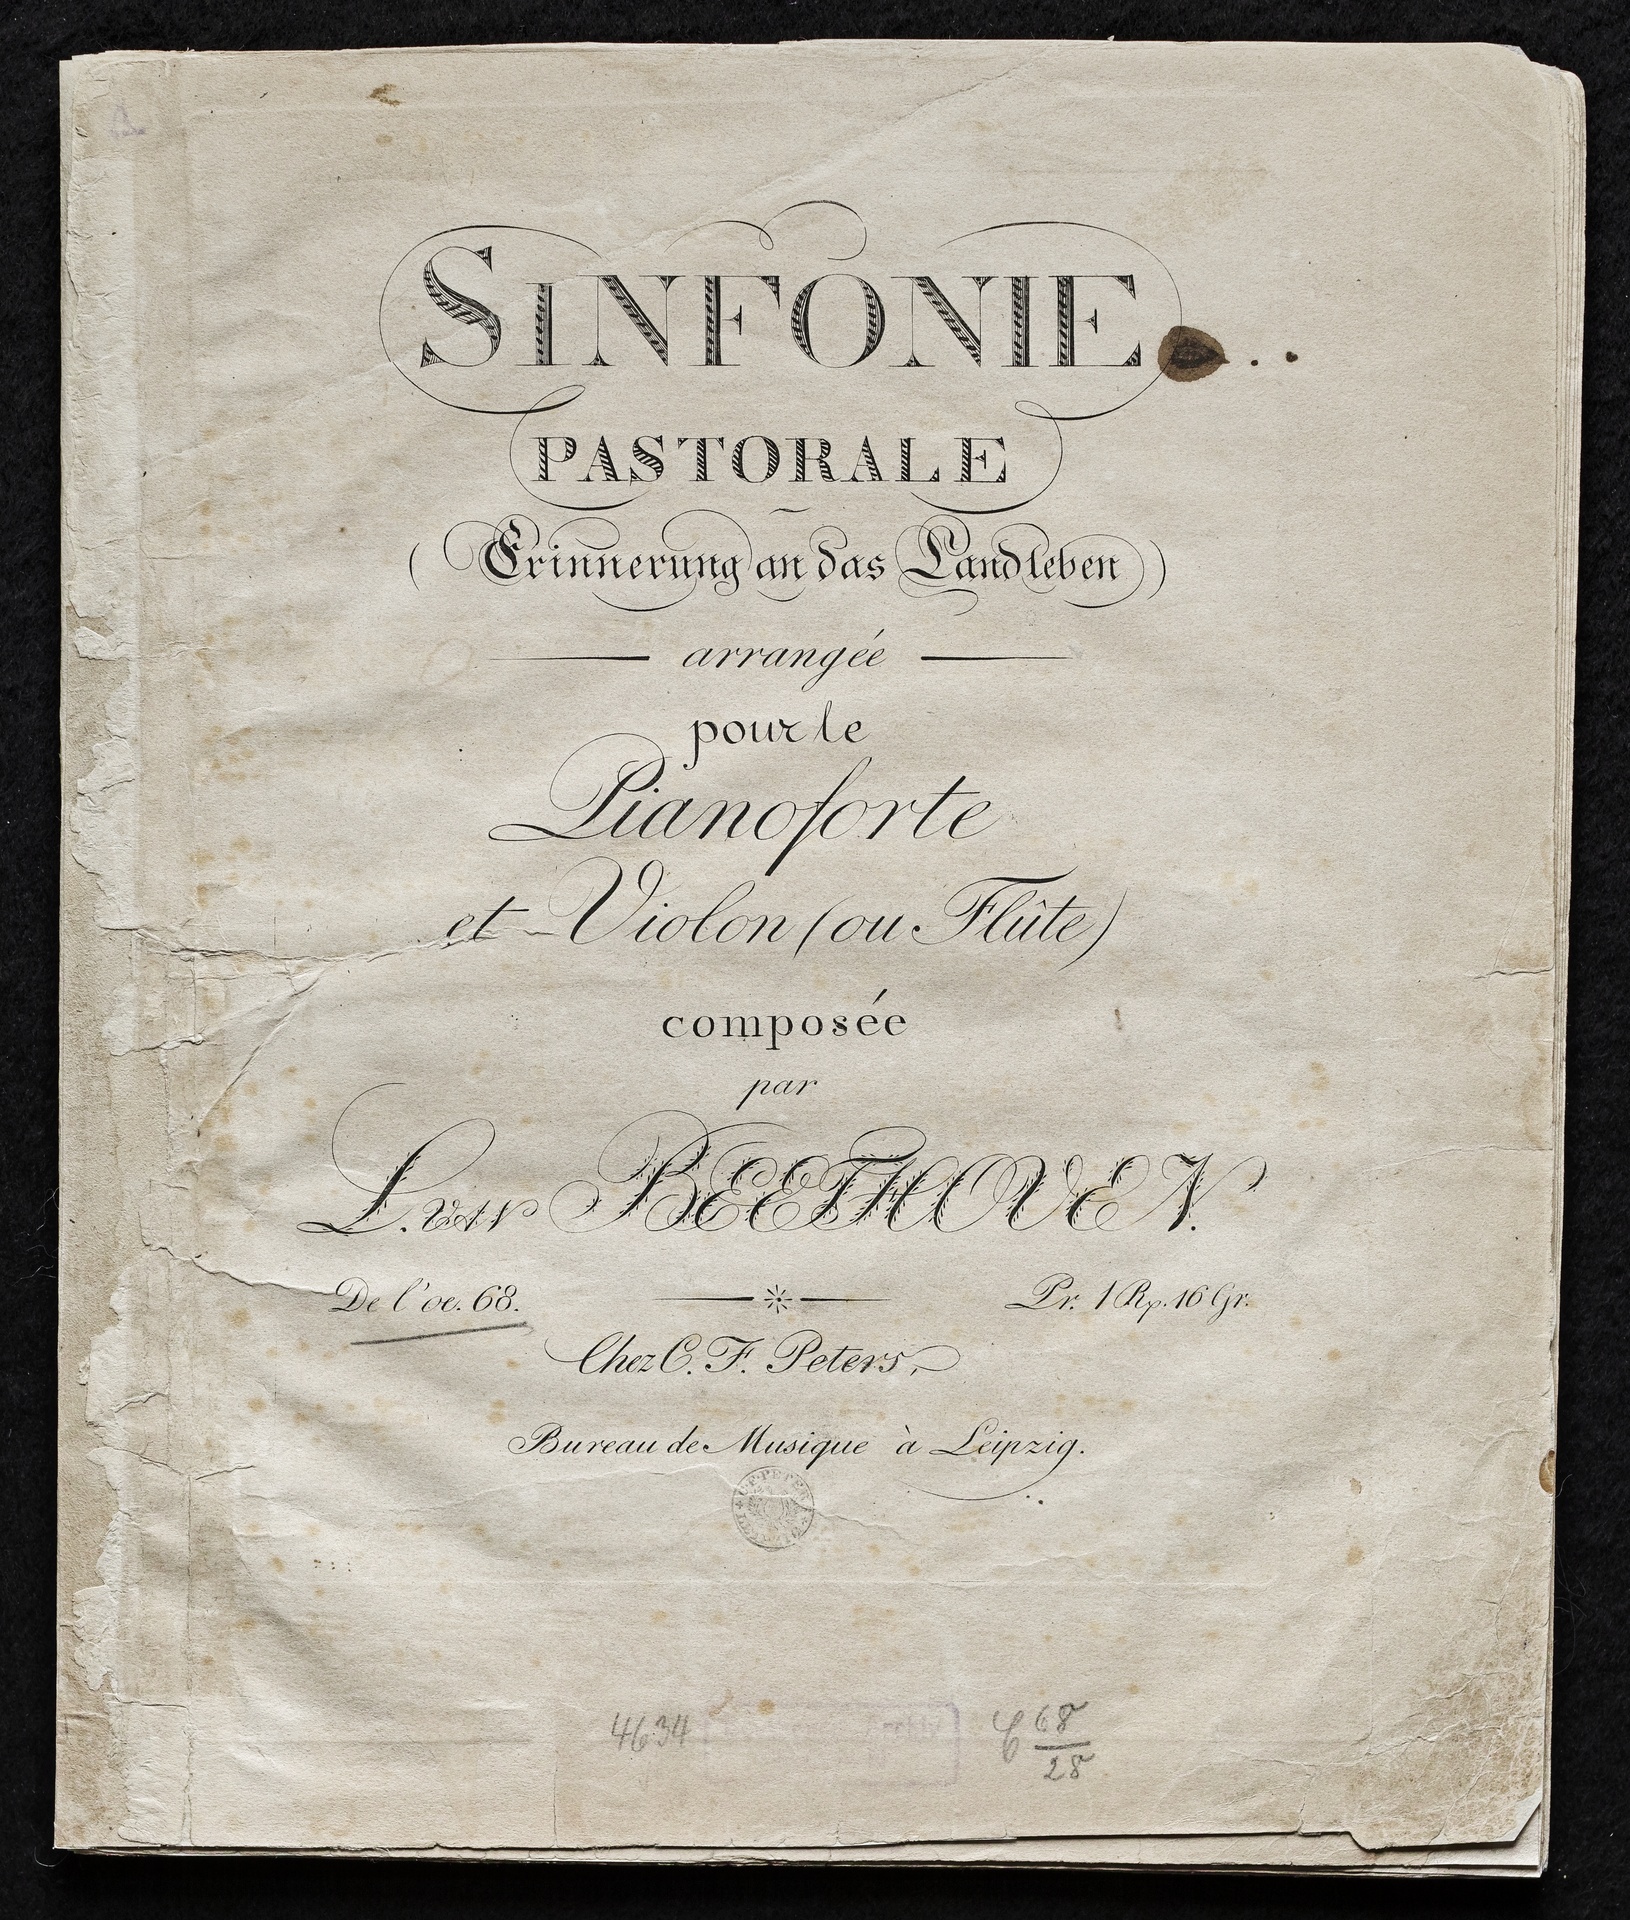 SINFONIE
PASTORALE
(Erinnerung an das Landleben)
arrangée
pour le
Pianoforte
et Violon (ou Flûte)
composée
par
L. VAN BEETHOVEN.
De l'oe. 68.
Pr. 1 Rp. 16 Gr.
Chez C. F. Peters,
Bureau de Musique à Leipzig.
C. F. PETERS
4634
C 68
28